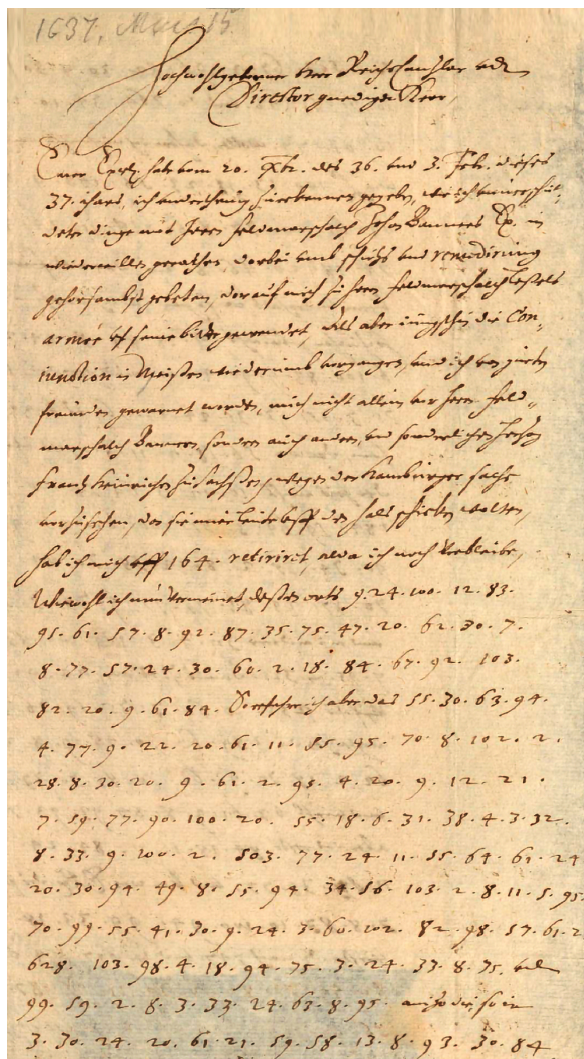 1637, 15
Hochwohlgeborner Herr Reichscanzlar und
Director gnediger Herr,
Ewer hab vom 20. Xbr. des 36. und 3. Febr. dieses
37. ihars, ich underthenig zuerkennen gegeben, wie ich unverschül-
deter dinge mit Herrn Feldmarschalch Johan Banners in
wiederwillen gerathen, dorbei umb schutz und remedirung
gehorsambst gebeten, dorauf mich zu Herrn Feldmarschalch
armée gewendet, Als aber jüngsthin die Con-
iunction in Meißen wiederumb vorgangen, und ich von guten
freunden gewarnet worden, mich nicht allein vor Herrn Feld-
marschalch Bannern, sondern auch andern, und sonderlichen
Frantz Heinrichen zu Sachssen, wegen der Hamburger sache
vorzusehen, das sie mier leute uff den hals schicken wolten,
hab ich mich uff 164. retirirt, alda ich noch verbleibe,
Wiewohl ich nun vermeinet, dießes orts 9. 24. 100. 12. 83.
95. 61. 57. 8. 92. 87. 35. 75. 47. 20. 62. 30. 7.
8. 77. 57. 24. 30. 60. 2. 18. 84. 67. 92. 103.
82. 20. 9. 61. 84. So erfahre ich aber das 55. 30. 63. 94.
4. 77. 9. 22. 20. 61. 11. 55. 95. 70. 8. 102. 2.
28. 8. 30. 20. 9. 61. 2. 95. 4. 20. 9. 12. 21.
7. 59. 77. 90. 100. 20. 55. 18. 6. 31. 38. 4. 3. 32.
8. 33. 9. 100. 2. 503. 77. 24. 11. 55. 64. 61. 24
20. 30. 94. 49. 8. 55. 94. 34. 56. 103. 2. 8. 11. 5. 95
70. 99. 55. 41. 30. 9. 24. 3. 60. 102. 82. 98. 57. 61. 2
628. 103. 98. 4. 18. 94. 75. 3. 24. 33. 8. 75. und
99. 59. 2. 8. 3. 33. 24. 63. 8. 95. so in
3. 30. 24. 20. 61. 21. 59. 58. 13. 8. 93. 30. 84